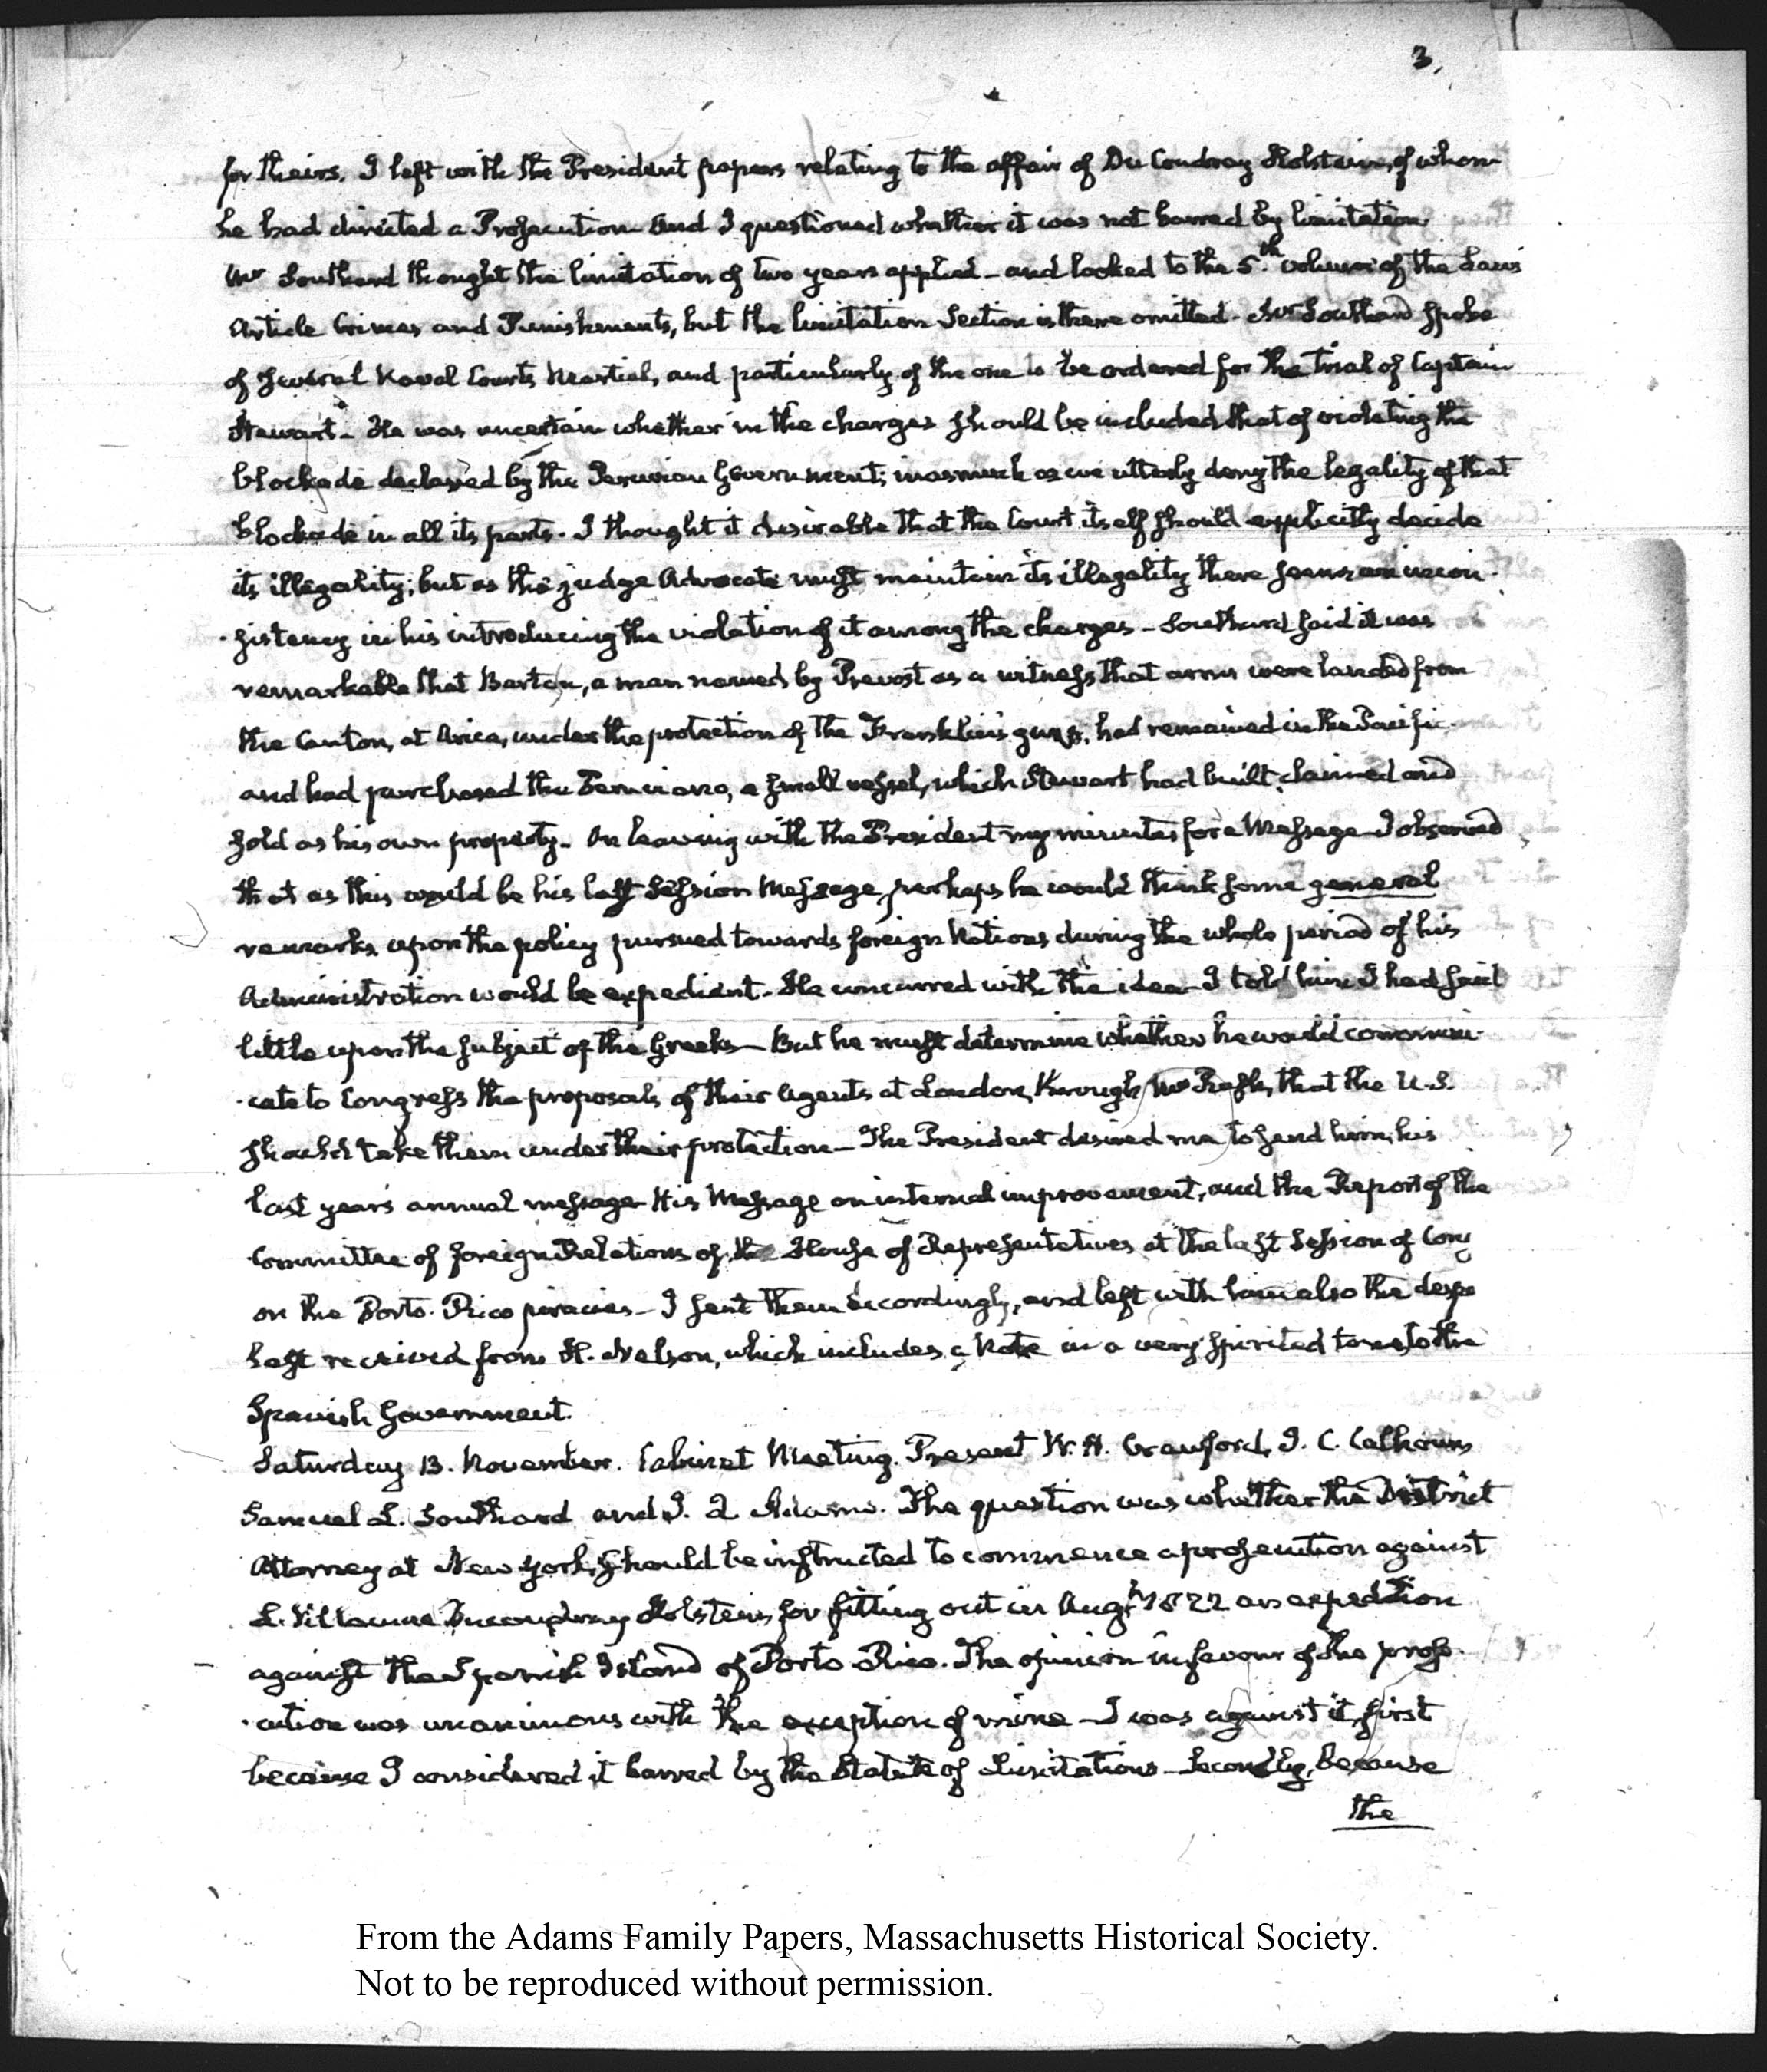 3.
for theirs. I left with the President papers relating to the affair of Du Coudray Holstein, of whom
he had directed a Prosecution and I questioned whether it was not barred by limitation
Mr Southard thought the limitation of two years applied – and looked to the 5.th volume of the Laws
Article Crimes and Punishments, but the limitation Section is there omitted. Mr Southard spoke
of several Naval Courts Martial, and particularly of the one to be ordered for the trial of Captain
Stewart – He was uncertain whether in the charges should be included that of violating the
blockade declared by the Peruvian Government; inasmuch as we utterly deny the legality of that
blockade in all its parts. I thought it desirable that the Court itself should explicitly decide
its illegality; but as the judge Advocate must maintain its illegality there seems an incon-
-sistency in his introducing the violation of it among the charges – Southard said it was
remarkable that Barton, a man named by Prevost as a witness that arms were landed from
the Canton, at Arica, under the protection of the Franklin's guns; had remained in the Pacific
and had purchased the Peruviano, a small vessel, which Stewart had built, claimed and
sold as his own property. On leaving with the President my minutes for a Message I observed
that as this would be his last Session Message, perhaps he would think some general
remarks upon the policy pursued towards foreign Nations during the whole period of his
Administration would be expedient. He concurred with the idea I told him I had said
little upon the subject of the Greeks – But he must determine whether he would communi-
-cate to Congress the proposals of their Agents at London, through Mr Rush, that the U.S.
should take them under their protection – The President desired me to send him, his
last year's annual message His Message on internal improvement, and the Report of the
Committee of foreign Relations of the House of Representatives at the last Session of Cong
on the Porto-Rico piracies – I sent them accordingly, and left with him also the desp
last received from H. Nelson, which includes a Note in a very spirited tone, to the
Spanish Government.
Saturday 13. November. Cabinet Meeting. Present W. H. Crawford, J. C. Calhoun,
Samuel L. Southard and J. Q. Adams. The question was whether the District
Attorney at New York, should be instructed to commence a prosecution against
L. Villaume Ducoudray Holstein, for fitting out in Augt 1822 an expedition
against the Spanish Island of Porto Rico. The opinion in favour of the prose-
-cution was unanimous with the exception of mine – I was against it, first
because I considered it barred by the Statute of Limitations – Secondly, because
the
From the Adams Family Papers, Massachusetts Historical Society.
Not to be reproduced without permission.